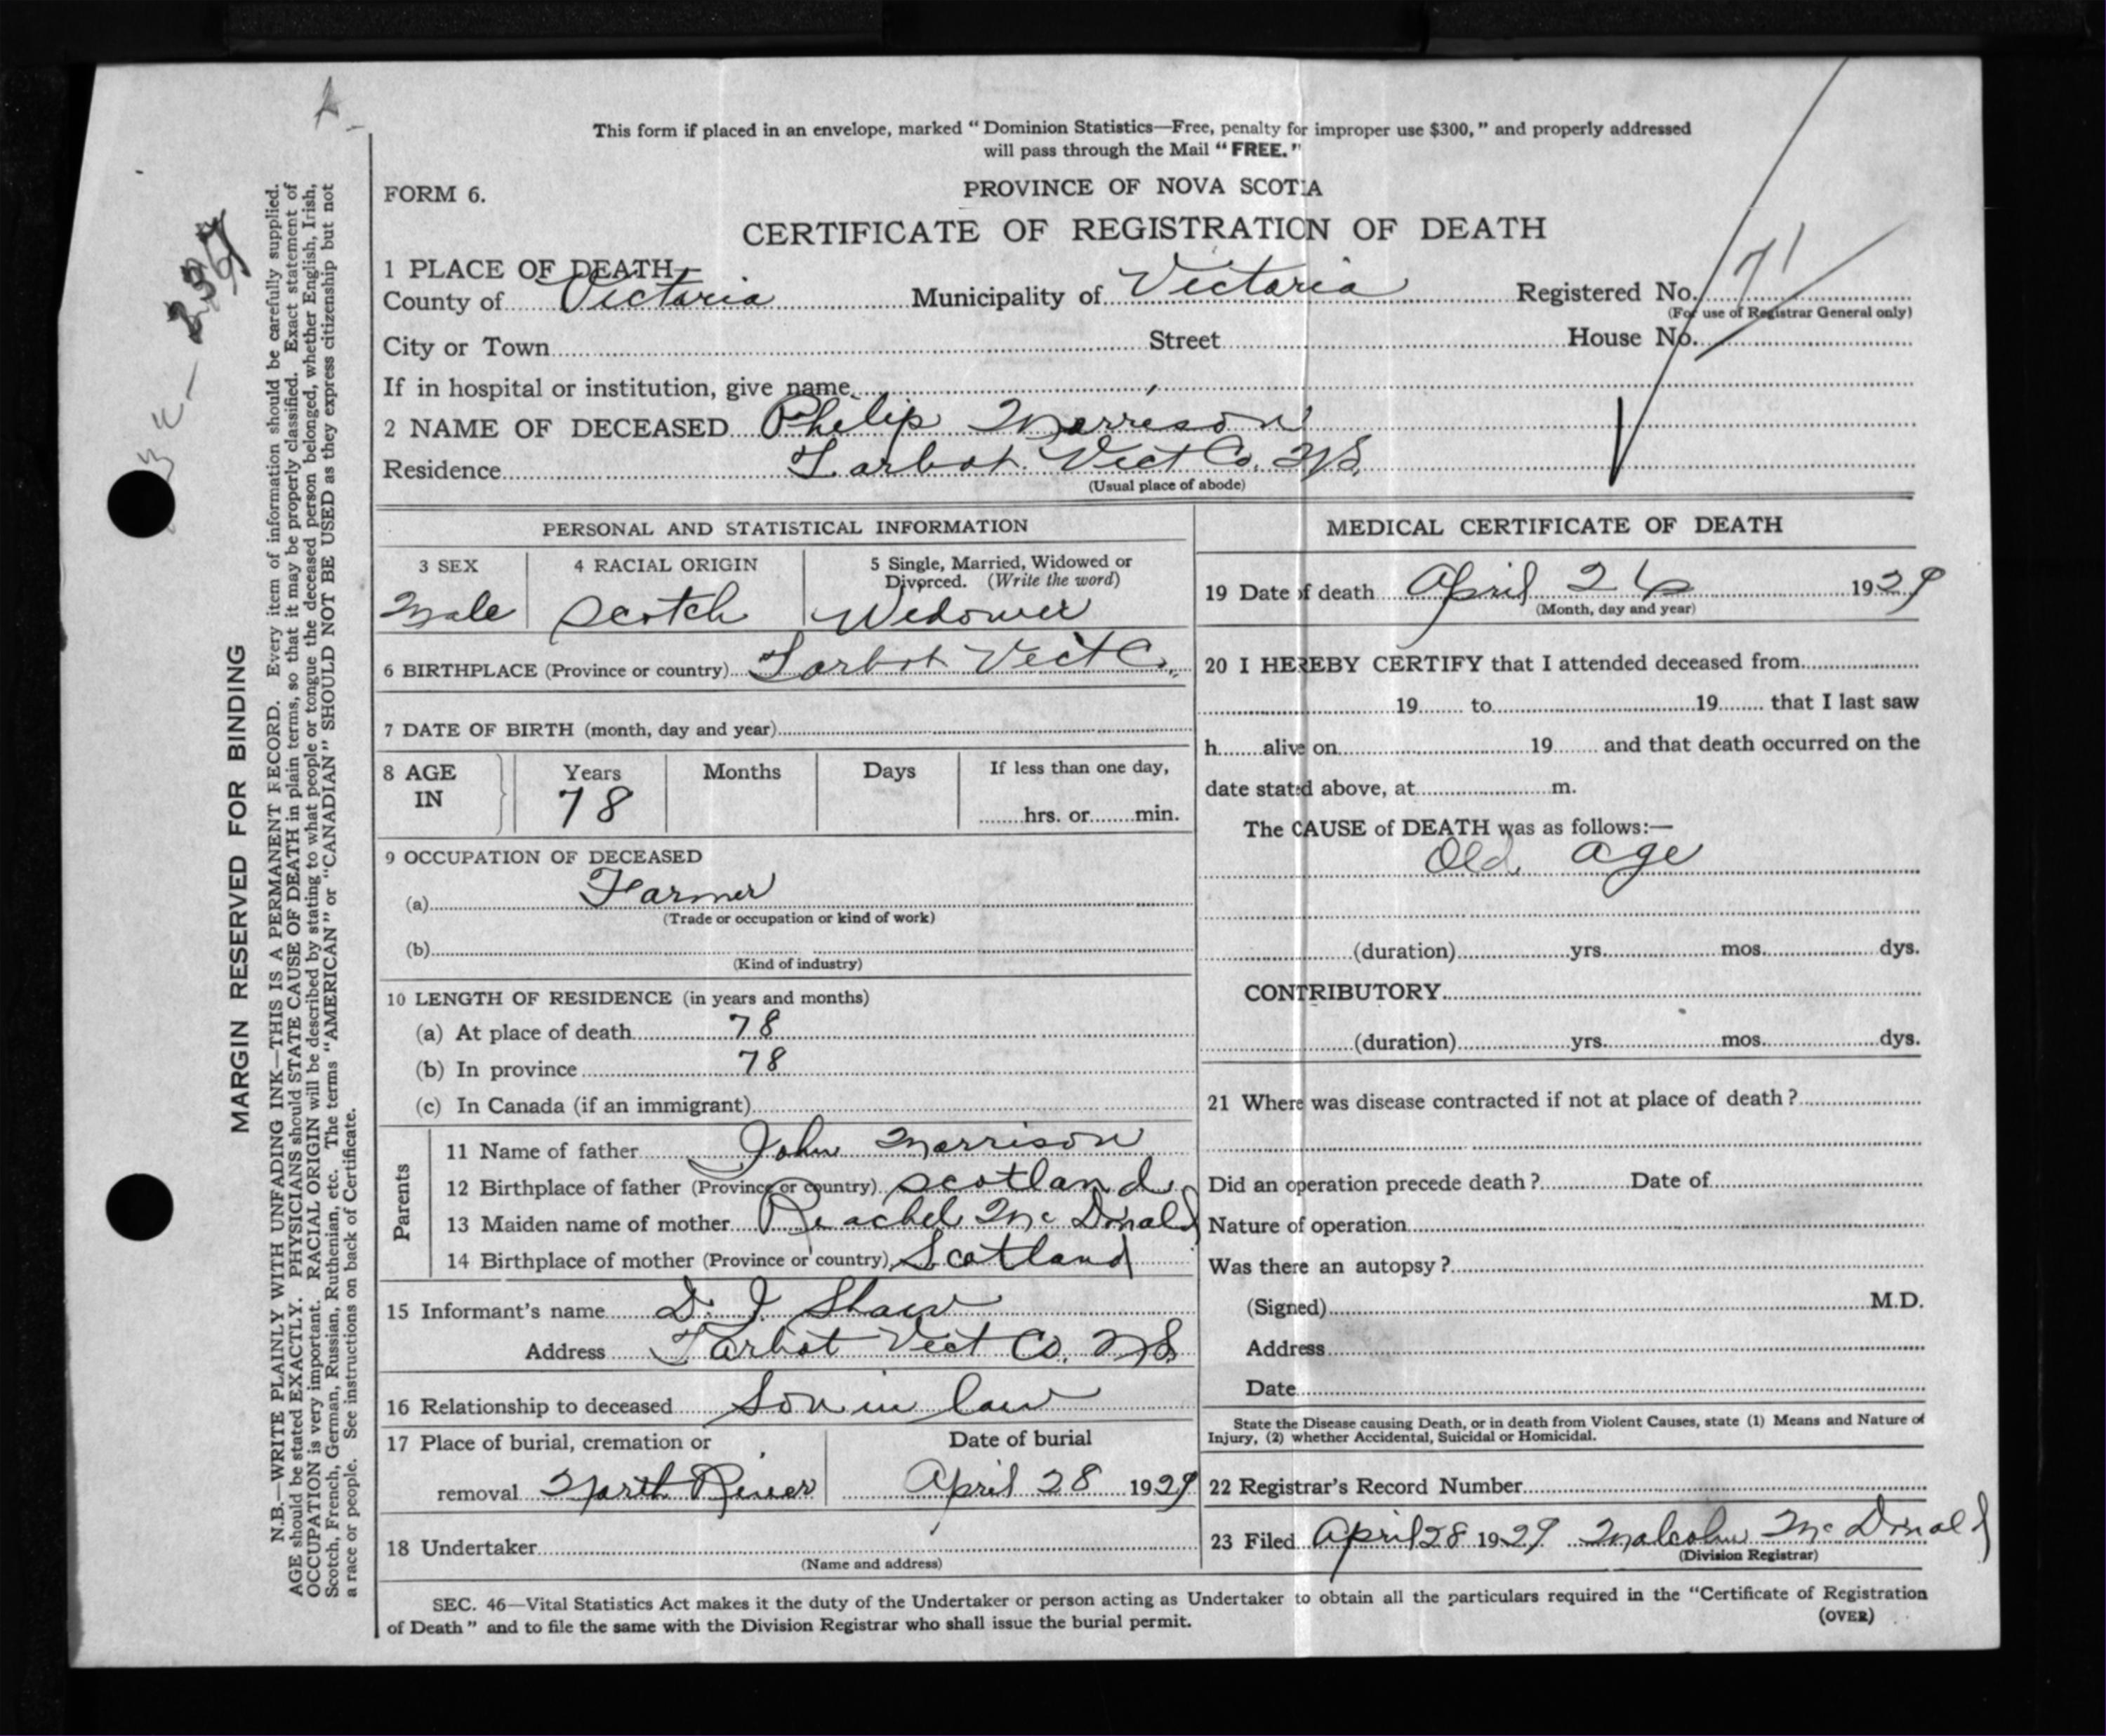 This form if placed in an envelope, marked “ Dominion Statistics—Free, penalty for improper use $300, ” and properly addressed
will pass through the Mail “ FREE. ”
FORM 6.
PROVINCE OF NOVA SCOTIA
CERTIFICATE OF REGISTRATION OF DEATH
1 PLACE OF DEATH—
County of Victoria Municipality of Victoria Registered No. 71
(For use of Registrar General only)
City or Town Street House No.
If in hospital or institution, give name
2 NAME OF DECEASED Philip Morrison
Residence Tarbot Vict Co. NS.
(Usual place of abode)
PERSONAL AND STATISTICAL INFORMATION
3 SEX 4 RACIAL ORIGIN 5 Single, Married, Widowed or
Divorced. (Write the word)
Male Scotch Widower
6 BIRTHPLACE (Province or country) Tarbot Vict Co.
7 DATE OF BIRTH (month, day and year)
8 AGE Years Months Days If less than one day,
IN 78 hrs. or min.
9 OCCUPATION OF DECEASED
(a) Farmer
(Trade or occupation or kind of work)
(b)
(Kind of industry)
10 LENGTH OF RESIDENCE (in years and months)
(a) At place of death 78
(b) In province 78
(c) In Canada (if an immigrant)
Parents
11 Name of father John Morrison
12 Birthplace of father (Province or country) Scotland
13 Maiden name of mother Reachel Mc Donald
14 Birthplace of mother (Province or country) Scotland
15 Informant's name D. J. Shaw
Address Tarbot Vict Co. NS.
16 Relationship to deceased Son in law
17 Place of burial, cremation or Date of burial
removal North River April 28 1929
18 Undertaker
(Name and address)
MEDICAL CERTIFICATE OF DEATH
19 Date of death April 26 1929
(Month, day and year)
20 I HEREBY CERTIFY that I attended deceased from
19 to 19 that I last saw
h alive on 19 and that death occurred on the
date stated above, at m.
The CAUSE of DEATH was as follows:—
Old age
(duration) yrs. mos. dys.
CONTRIBUTORY
(duration) yrs. mos. dys.
21 Where was disease contracted if not at place of death ?
Did an operation precede death ? Date of
Nature of operation
Was there an autopsy ?
(Signed) M.D.
Address
Date
State the Disease causing Death, or in death from Violent Causes, state (1) Means and Nature of
Injury, (2) whether Accidental, Suicidal or Homicidal.
22 Registrar's Record Number
23 Filed April 28 1929 Malcolm Mc Donald
(Division Registrar)
SEC. 46—Vital Statistics Act makes it the duty of the Undertaker or person acting as Undertaker to obtain all the particulars required in the “Certificate of Registration
of Death ” and to file the same with the Division Registrar who shall issue the burial permit.
(OVER)
MARGIN RESERVED FOR BINDING
N.B.—WRITE PLAINLY WITH UNFADING INK—THIS IS A PERMANENT RECORD. Every item of information should be carefully supplied.
AGE should be stated EXACTLY. PHYSICIANS should STATE CAUSE OF DEATH in plain terms, so that it may be properly classified. Exact statement of
OCCUPATION is very important. RACIAL ORIGIN will be described by stating to what people or tongue the deceased person belonged, whether English, Irish,
Scotch, French, German, Russian, Ruthenian, etc. The terms “AMERICAN” or “CANADIAN” SHOULD NOT BE USED as they express citizenship but not
a race or people. See instructions on back of Certificate.